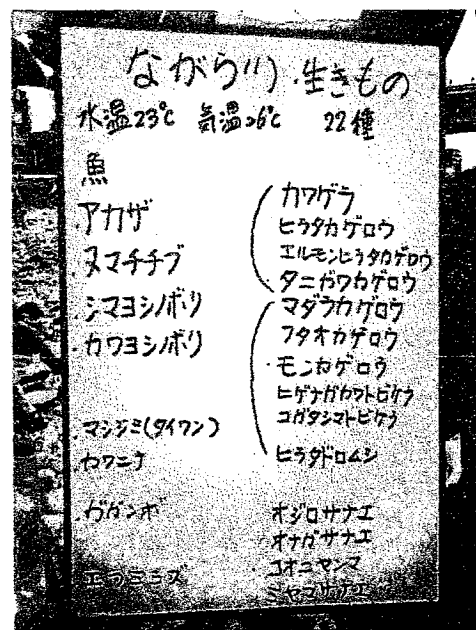 ながら川 生きもの
水温23℃ 気温26℃ 22種
魚
・アカザ
・ヌマチチブ
・シマヨシノボリ
・カワヨシノボリ
・マシジミ(タイワン)
・カワニナ
・ガガンボ
・エラミミズ
カワゲラ
ヒラタカゲロウ
エルモンヒラタカゲロウ
タニガワカゲロウ
マダラカゲロウ
フタオカゲロウ
・モンカゲロウ
ヒゲナガカワトビケラ
コガタシマトビケラ
ヒラタドロムシ
オジロサナエ
オナガサナエ
コオニヤンマ
ミヤマサナエ